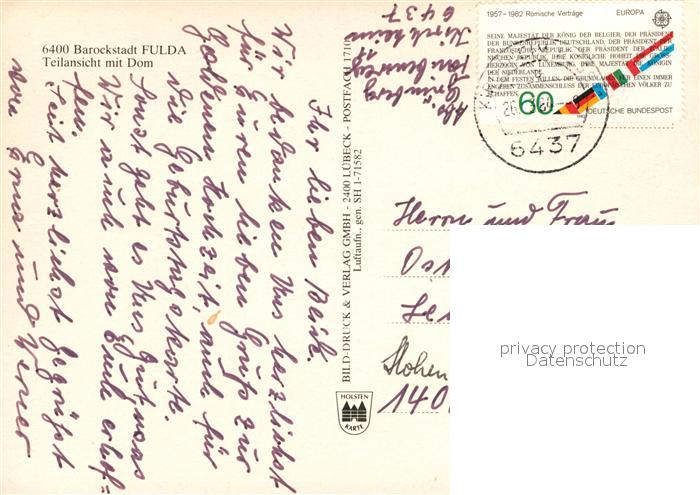 6400 Barockstadt FULDA
Teilansicht mit Dom
Ihr lieben Beide.
Wir bedanken Uns herzlichst
für Euren lieben Gruß zur
Goldenen Hochzeit, auch für
die Geburtstagskarte.
Sonst geht es Uns gut, was
Wir auch von Euch erhof=
fen.
Seid herzlichst gegrüßt
von Erna und Werner
Abs.
Grünberg
11
Kirchheim
6437
BILD-DRUCK & VERLAG GMBH - 2400 LÜBECK - POSTFACH 1710
Luftaufn., gen. SH 1-71582
HOLSTEN
KARTE
1957-1982 Römische Verträge EUROPA
SEINE MAJESTÄT DER KÖNIG DER BELGIER, DER PRÄSIDENT
DER BUNDESREPUBLIK DEUTSCHLAND, DER PRÄSIDENT DER
FRANZÖSISCHEN REPUBLIK, DER PRÄSIDENT DER ITALIE-
NISCHEN REPUBLIK, IHRE KÖNIGLICHE HOHEIT DIE GROSS-
HERZOGIN VON LUXEMBURG, IHRE MAJESTÄT DIE KÖNIGIN
DER NIEDERLANDE,
IN DEM FESTEN WILLEN, DIE GRUNDLAGEN FÜR EINEN IMMER
ENGEREN ZUSAMMENSCHLUSS DER EUROPÄISCHEN VÖLKER ZU
SCHAFFEN,
60
DEUTSCHE BUNDESPOST
6437
Herrn und Frau
Hohen
140
privacy protection
Datenschutz